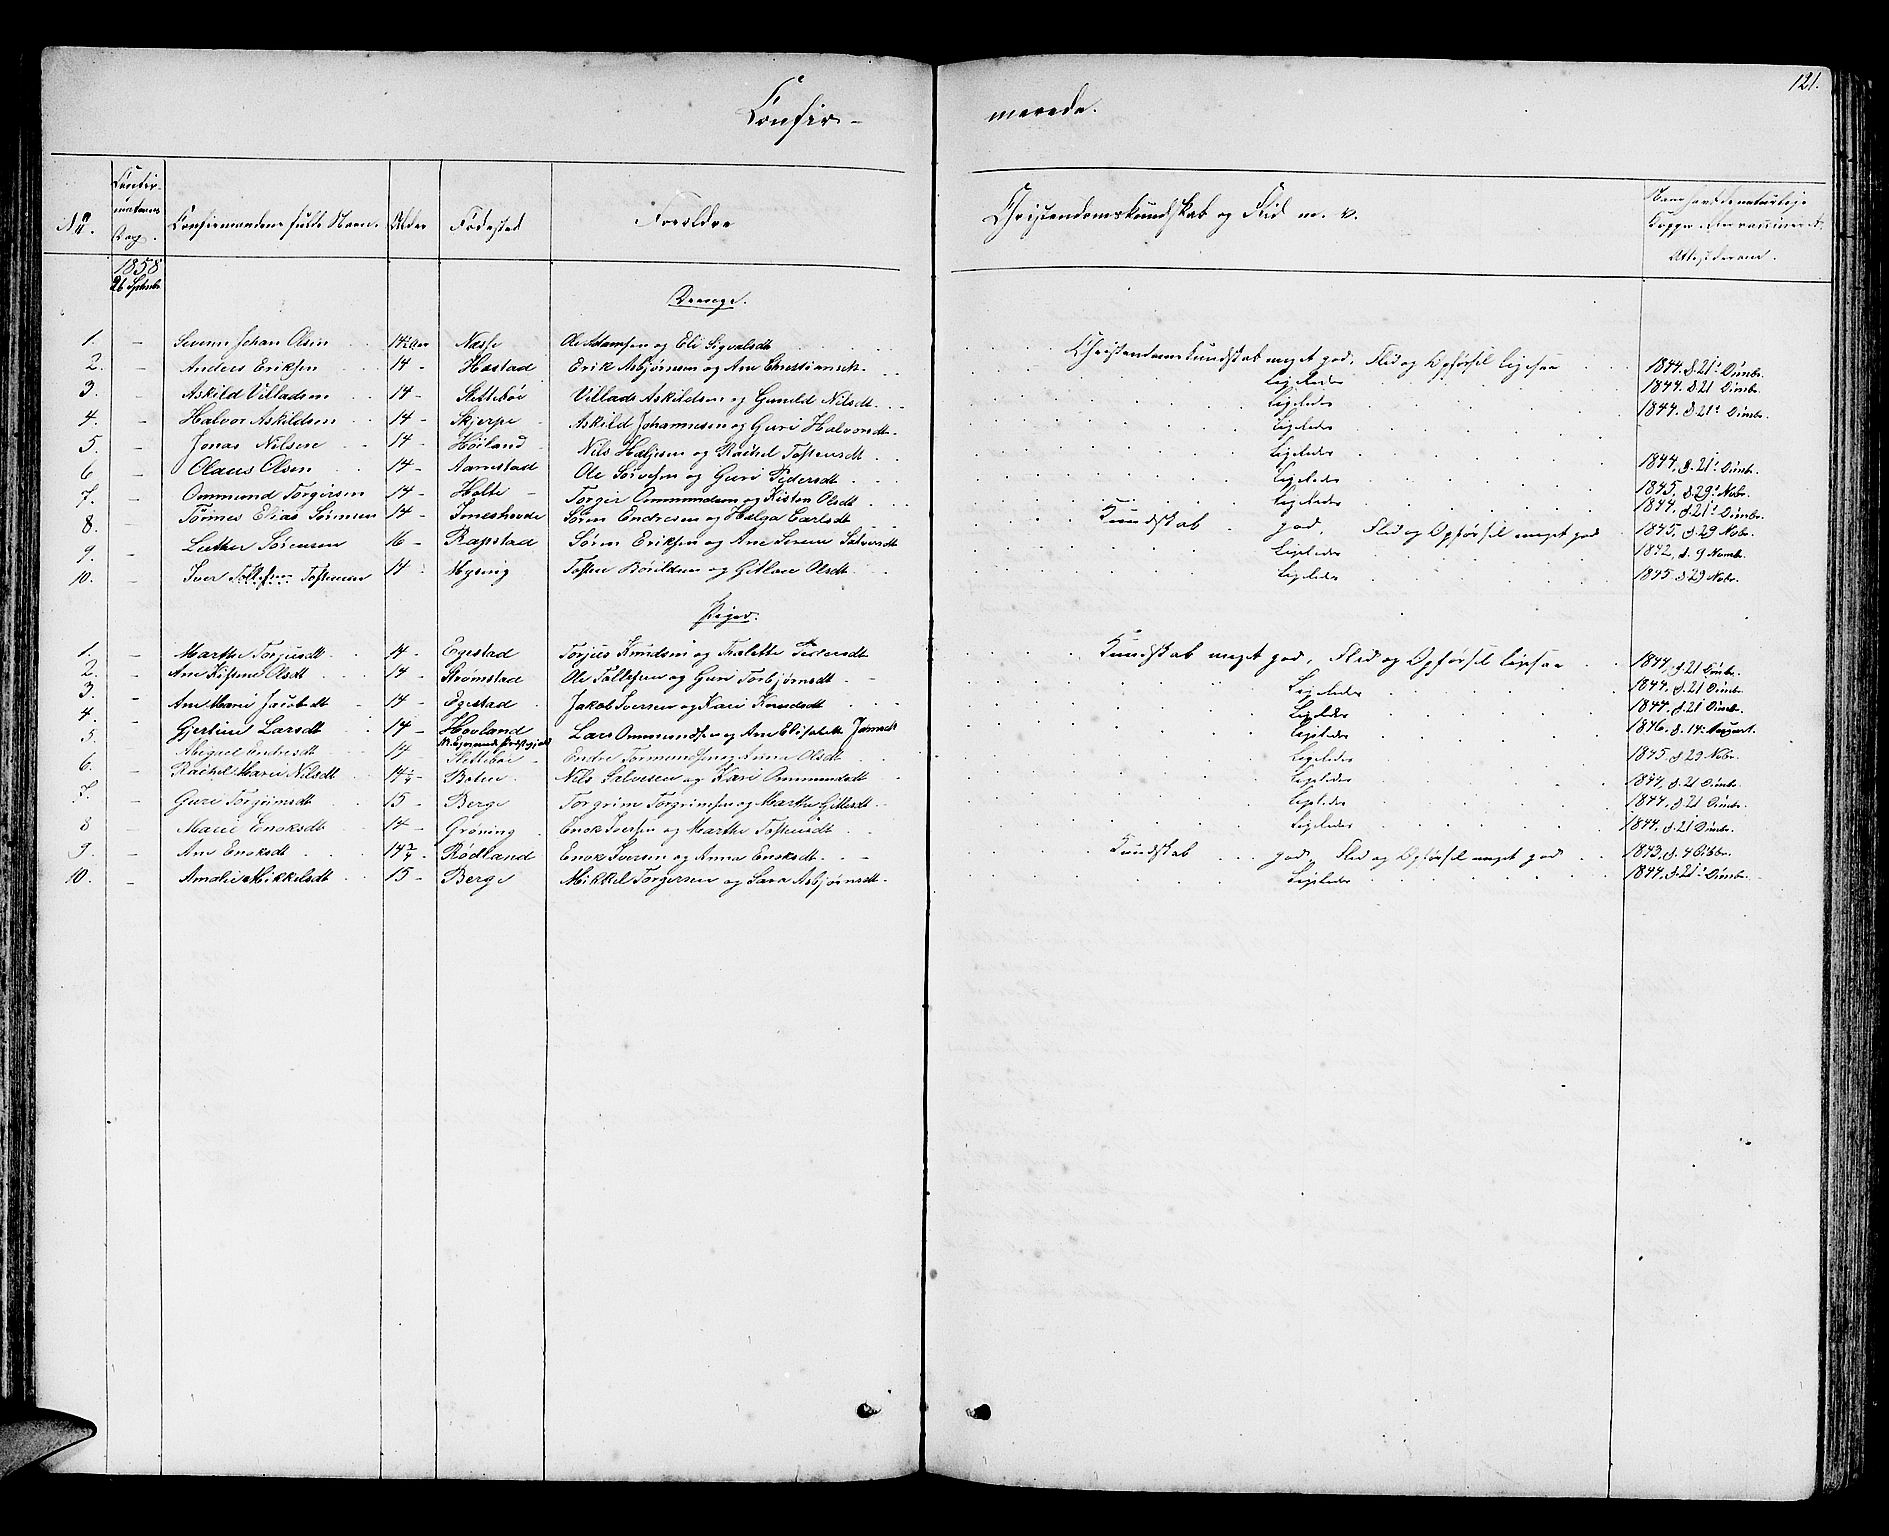 121.
Confir- merede.
No. Confir- mations Dag. Confirmandens fulde Navn. Alder Fødested Forældre Christendomskundskab og Flid m. v. Have havt de naturlige Kopper eller vaccineret. Attest derom.
1858
26 Septebr
Drenge.
1. - Severin Johan Olsen 14½ Aar Næsse Ole Adamsen og Eli Sigvalsdt Christendomskundskab meget god, Flid og Opførsel ligesaa 1844. d. 21' Dcmbr.
2. - Anders Eriksen 14 - Hæstad Erik Asbjørnsen og Ane Christiansdt. Ligeledes 1844. d 21 Dcmbr.
3. - Askild Villadsen 14 - Slettebøe Villads Askildsen og Gunild Nilsdt. Ligeledes 1844. d. 21' Dcmbr.
4. - Halvor Askildsen 14 - Skjerpe Askild Johannesen og Guri Halvorsdt. Ligeledes
5. - Jonas Nilsen 14 - Høiland Nils Heljesen og Rachel Tostensdt Ligeledes 1844, d. 21' Dcmbr.
6 - Olaus Olsen 14 - Aarrestad Ole Sørensen og Guri Pedersdt Ligeledes 1845. d. 29' Nobr.
7. - Ommund Torgersen 14 - Holte - Torger Ommundsen og Kisten Olsdt Ligeledes 1844. d. 21' Dcmbr.
8. - Tønnes Elias Sørensen 14 - Søren Endresen og Helga Carlsdt Kundskab god, Flid og Opførsel meget god 1845, d. 29 Nobr.
9. - Luther Sørensen 16 - Rapstad Søren Eriksen og Ane Serine Salvesdt Ligeledes 1842, d. 9 Novmbr.
10. - Iver Tollefsen Tostensen 14 - Mysing Tosten Børildsen og Gitlaue Olsdt Ligeledes 1845 d 29 Nobr.
Piger.
1. - Marthe Torjusdt 14 - Egestad Torjus Knudsen og Tralette Pedersdt Kundskab meget god, Flid og Opførsel ligesaa 1844. d. 21 Dcmbr.
2. - Ane Kistine Olsdt 14 - Strømstad Ole Tollefsen og Guri Torbjørnsdt Ligeledes 1844. d. 21 Dcmbr
3. - Ane Marie Jacobsdt 14 - Egestad Jakob Iversen og Kari Knudsdt Ligeledes 1844. d. 21 Dcmbr
4. - Gjertine Larsdt 14 - Hovland Lars Ommundsen og Ane Elisabeth Jonasdt Ligeledes 1846. d. 14 August.
5. - Abigael Endresdt 14 - Slettebøe Endre Tormundsen og Anna Olsdt Ligeledes 1845 d 29 Nobr.
6. - Rachel Marie Nilsdt 14¼ - Boten Nils Salvesen og Kari Ommundsdt Ligeledes 1844, d. 21 Dcmbr.
7. - Guri Torgrimsdt 15 - Berge Torgrim Torgrimsen og Marthe Gitlesdt Ligeledes 1844. d. 21 Dcmbr.
8 - Marie Enoksdt 14 - Grøning Enok Iversen og Marthe Tostensdt Ligeledes 1844. d. 21 Dcmbr.
9. - Ane Enoksdt 14¾ - Rødland Enok Iversen og Anna Enoksdt Kundskab god, Flid og Opførsel meget god 1843, d. 4 Octbr.
10. - Amalie Mikkelsdt 15 - Berge Mikkel Torgersen og Sara Asbjørnsdt Ligeledes 1844, d. 21' Dcmbr.